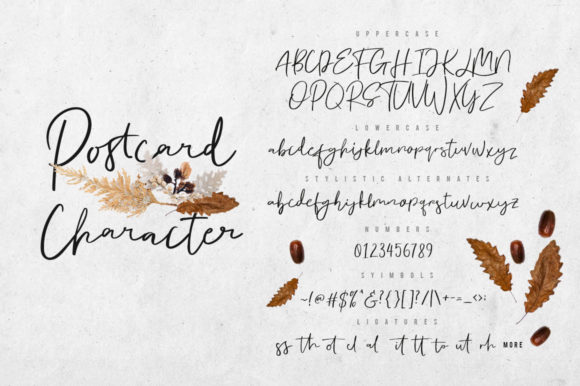 Postcard
Character
UPPERCASE
ABCDEFGHIJKLMN
OPQRSTUVWXYZ
LOWERCASE
abcdefghijklmnopqrstuvwxyz
STYLISTIC ALTERNATES
abcdefghijklmnopqrstuvwxyz
NUMBERS
0123456789
SYIMBOLS
~!@#$%^&?{}[]?/|\+-=_<>:
LIGATURES
ss th ot cl al it tt to ut rh MORE